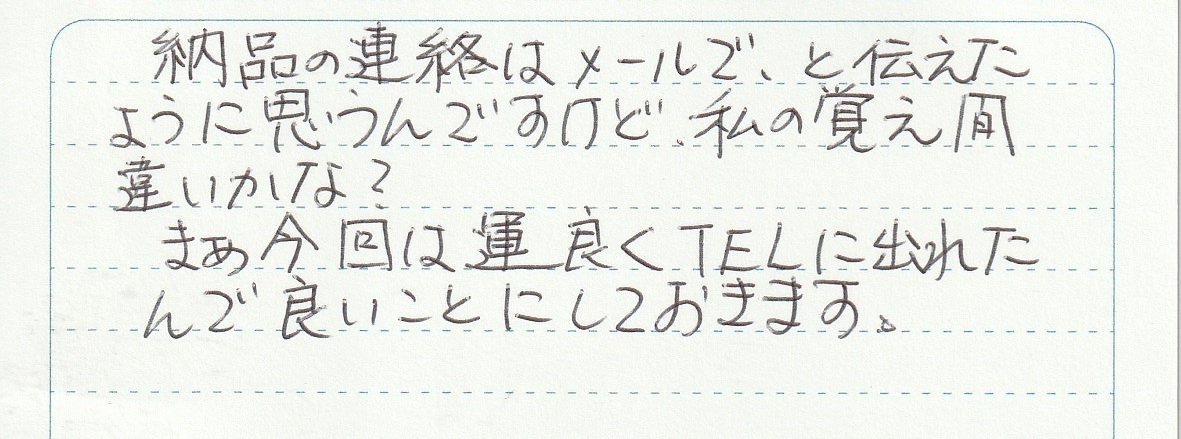 納品の連絡はメールで、と伝えた
ように思うんですけど、私の覚え間
違いかな?
まあ今回は運良くTELに出れた
んで良いことにしておきます。